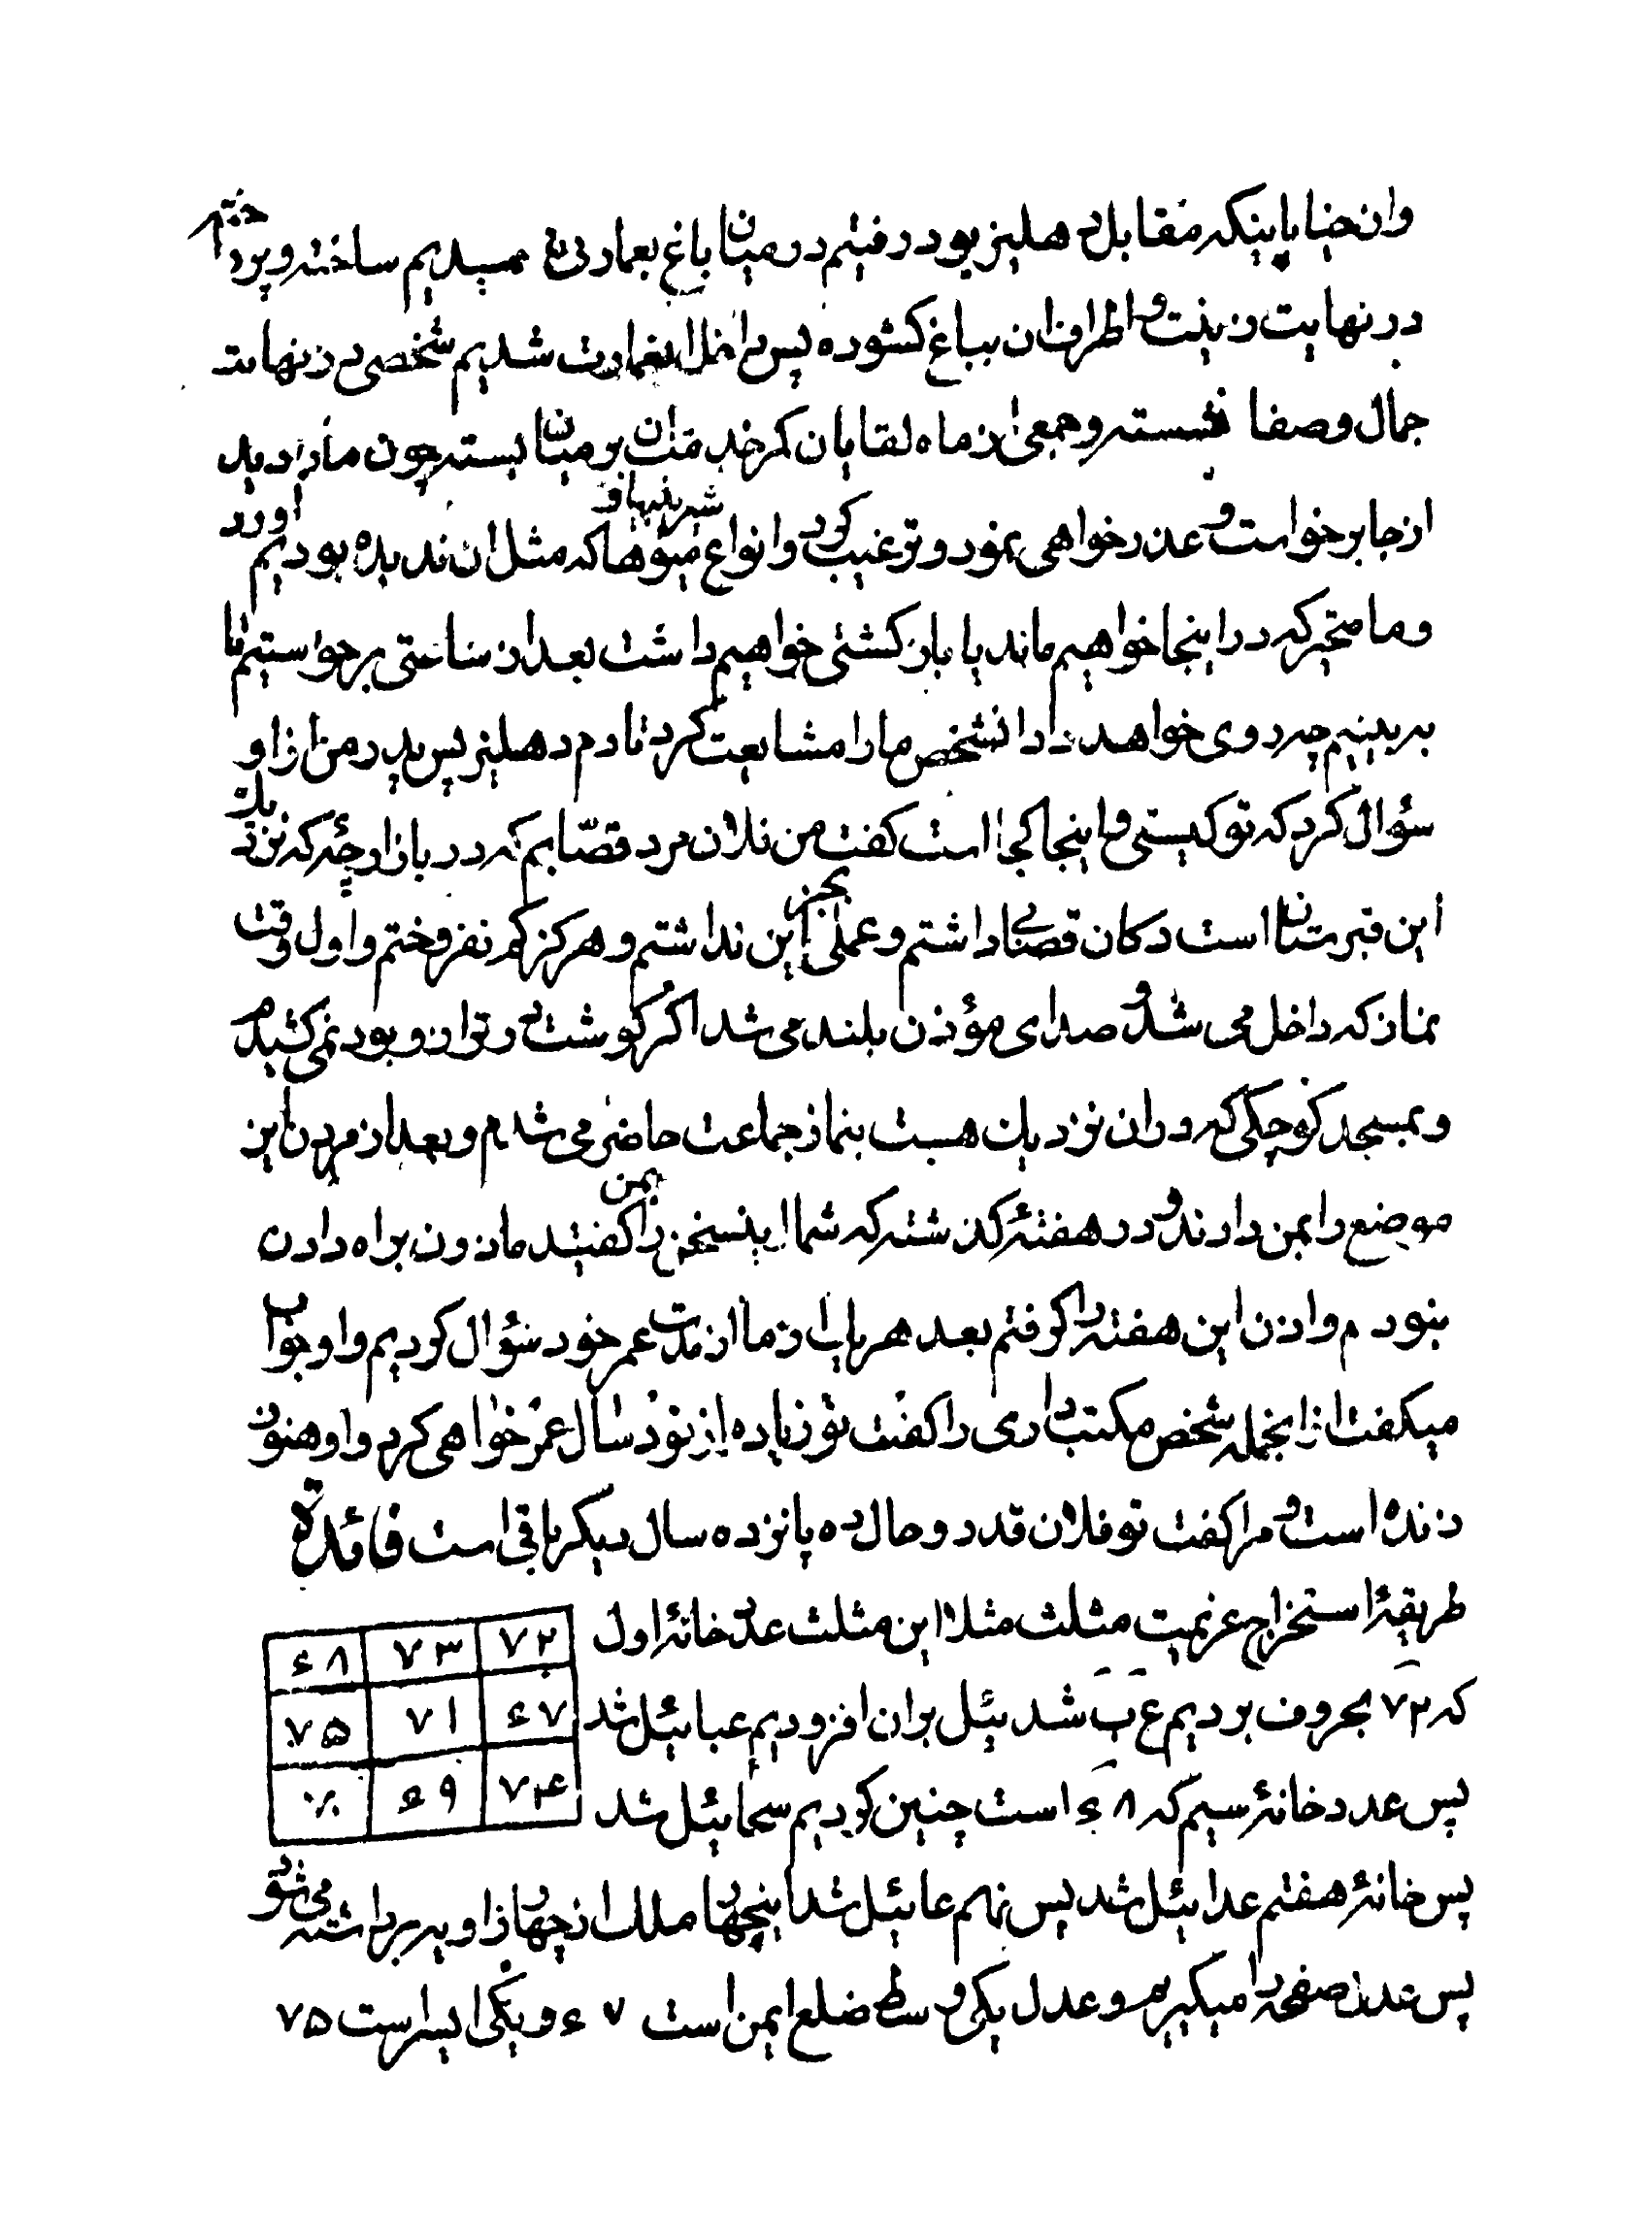 وان خیابانیکه مقابل دهلیز بود رفتیم در میان باغ بعمارتی رسیدیم ساخته و پرداخته
در نهایت زینت و اطراف ان بباغ کشوده پس داخل انعمارت شدیم شخصی در نهایت
جمال و صفا نشسته و جمعی از ماه لقایان کمر خدمتش بر میان بسته چون ما را دید
از جا برخواست و عذر خواهی نمود و ترغیب کرد و انواع شیرینیها و میوها که مثل ان ندیده بودیم اورد
و ما متحیر که در اینجا خواهیم ماند یا بازکشتی خواهیم داشت بعد از ساعتی برخواستیم تا
به بینیم چه روی خواهد داد انشخص ما را مشایعت کرد تا دم دهلیز پس پدر من از او
سؤال کرد که تو کیستی و اینجا کجا است کفت من فلان مرد قصّابم که در بازارچۀ که نزدیک
این قبرستان است دکان قصابی داشتم و عملی بجز این نداشتم و هرکز کم نفروختم و اول وقت
نماز که داخل می شد و صدای مؤذن بلند می شد اکر کوشت در ترازو بود نمی کشیدم
و بمسجد کوچکی که در ان نزدیک هست بنماز جماعت حاضر می شدم و بعد از مردن این
موضع را بمن دادند و در هفتۀ کذشته که شما اینسخن را بمن کفتید ماذون براه دادن
نبودم و اذن این هفته را کرفتم بعد هر یک از ما از مدت عمر خود سؤال کردیم و او جواب
میکفت از انجمله شخص مکتب داری را کفت تو زیاده از نود سال عمر خواهی کرد و او هنوز
زنده است و مرا کفت تو فلان قدر و حال ده پانزده سال دیکر باقی است فائدة
طریقۀ استخراج عزیمت مثلث مثلا این مثلث عدد خانۀ اول
که ۷۲ بحروف بردیم ع ب شد ئیل بران افزودیم عبائیل شد
پس عدد خانۀ سیم که ۶۸ است چنین کردیم سحائیل شد
پس خانۀ هفتم عدائیل شد پس نهم عائیل شد اینچهار ملک از چهار زاویه برداشته می شود
پس عدل صفحه را میکیریم و عدل یکی وسط ضلع ایمن است ۶۷ و یکی ایسر است ۷۵
۷۲ ۷۳ ۶۸
۶۷ ۷۱ ۷۵
۷۴ ۶۹ ۷۰